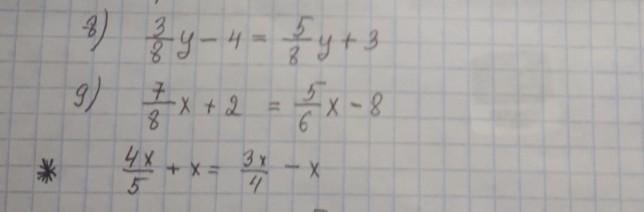 8) 3/8 y - 4 = 5/8 y + 3
9) 7/8 x + 2 = 5/6 x - 8
* 4x/5 + x = 3x/4 - x